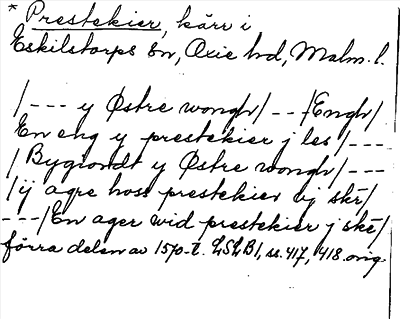 * Prestekier, kärr i
Eskilstorps sn, Oxie hd, Malm. l.
/--- y Østre wongh/ -- /Engh/
En eng y prestekier j les /---
/ Bygiordt y Østre wongh/ ---
/ij agre hoss prestekier vj skē/
---/En ager wid prestekier j skē/
förra delen av 1570-t. LSLB1, ss. 417, 418. orig